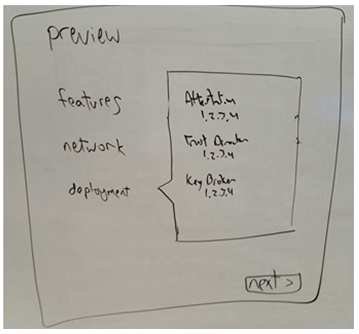 preview
features
network
deployment
Attestation
1.2.3.4
Trust Director
1.2.3.4
Key Broker
1.2.3.4
next >